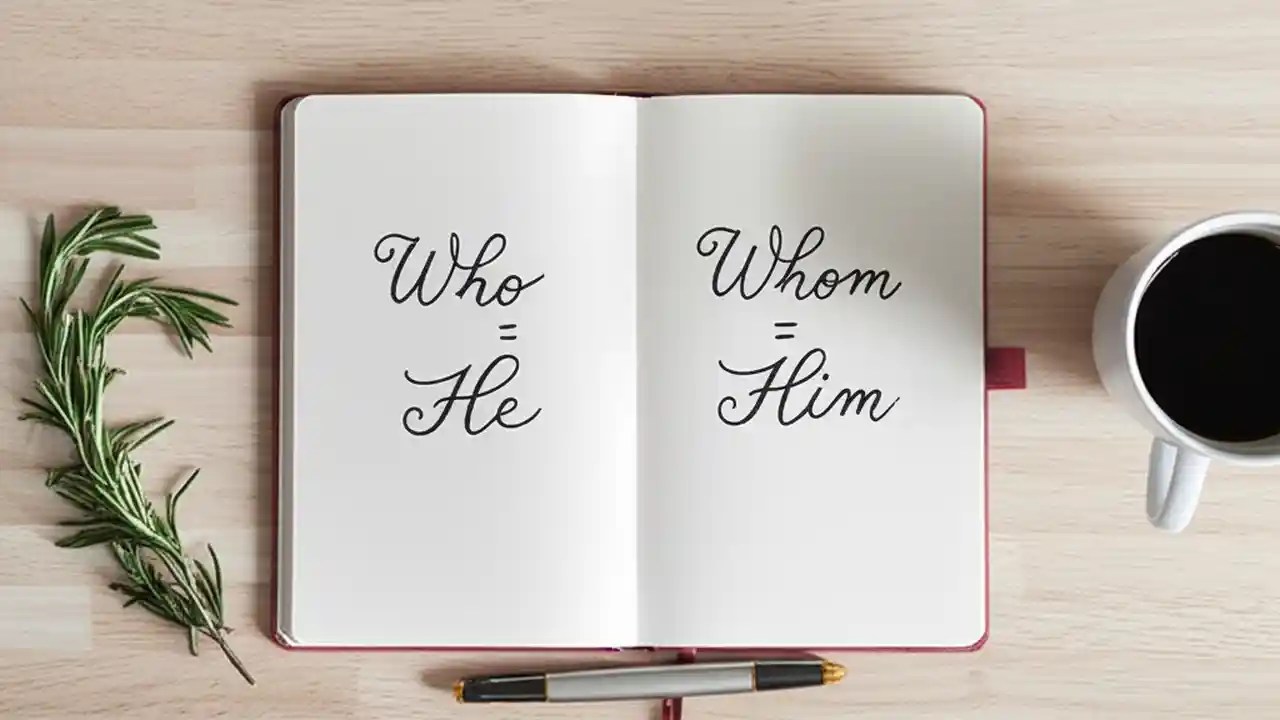 Who
=
He
Whom
=
Him